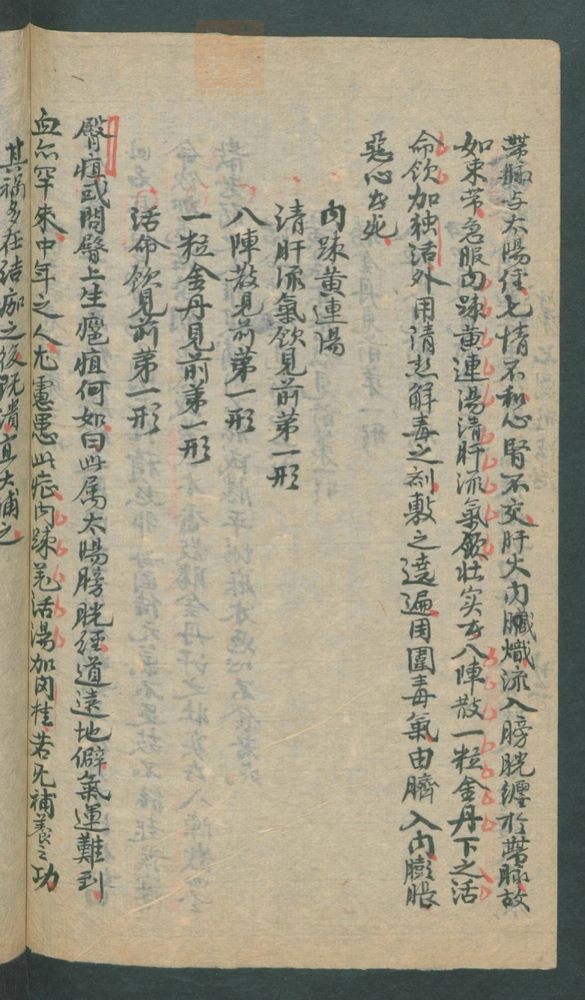 帶脉与太陽徃七情不和心腎不交肝火内臟熾流入膀胱纏於帶脉故
如束带急服内踈黄連湯清肝流氣飲壮实者八陣散一粒金丹下之活
命飲加独活外用清热解毒之剂敷之遶遍周圍毒氣由臍入内膨脹
惡心者死
内踈黄連湯
清肝流氣飲見前苐一形
八陣散見前苐一形
一粒金丹見前苐一形
活命飲見前苐一形
臀疽或問臀上生瘡疽何如曰此属太陽膀胱經道遠地僻氣運難到
血亦罕來中年之人尤慮患此症内踈羌活湯加肉桂若无補養之功
其禍多在结痂之後既潰宜大補之